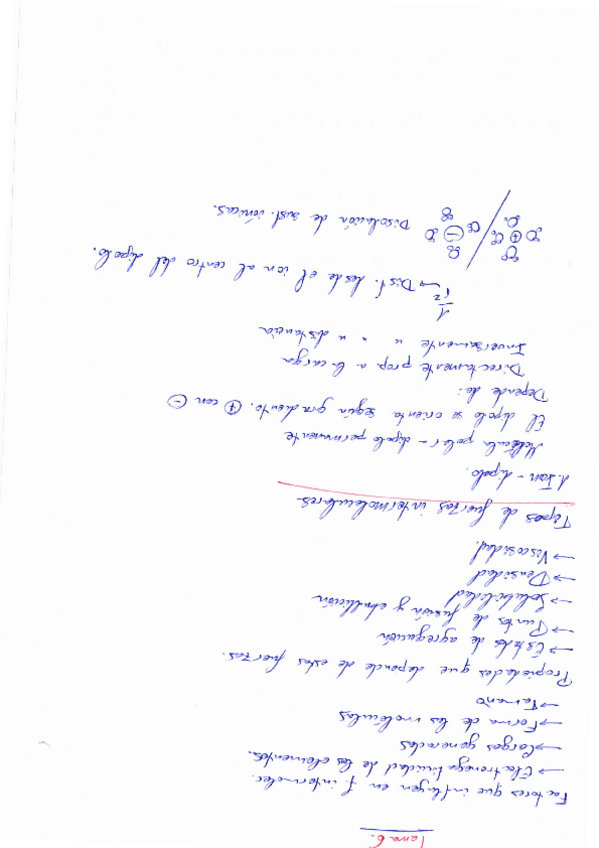 Tema 6.
Factores que influyen en f. intermolec.
→ Electronegatividad de los elementos.
→ Cargas generadas
→ Forma de las moléculas
→ Tamaño
Propiedades que depende de estas fuerzas.
→ Estados de agregación
→ Puntos de fusión y ebullición
→ Solubilidad
→ Densidad
→ Viscosidad.
Tipos de fuerzas intermoleculares
1. Ion - dipolo.
Molécula polar - dipolo permanente
El dipolo se orienta según gradiento. + con -
Depende de:
Directamente prop. a la carga
Inversamente " " " distancia
1/r² → Dist. desde el ion al centro del dipolo.
Disolución de sust. iónicas.